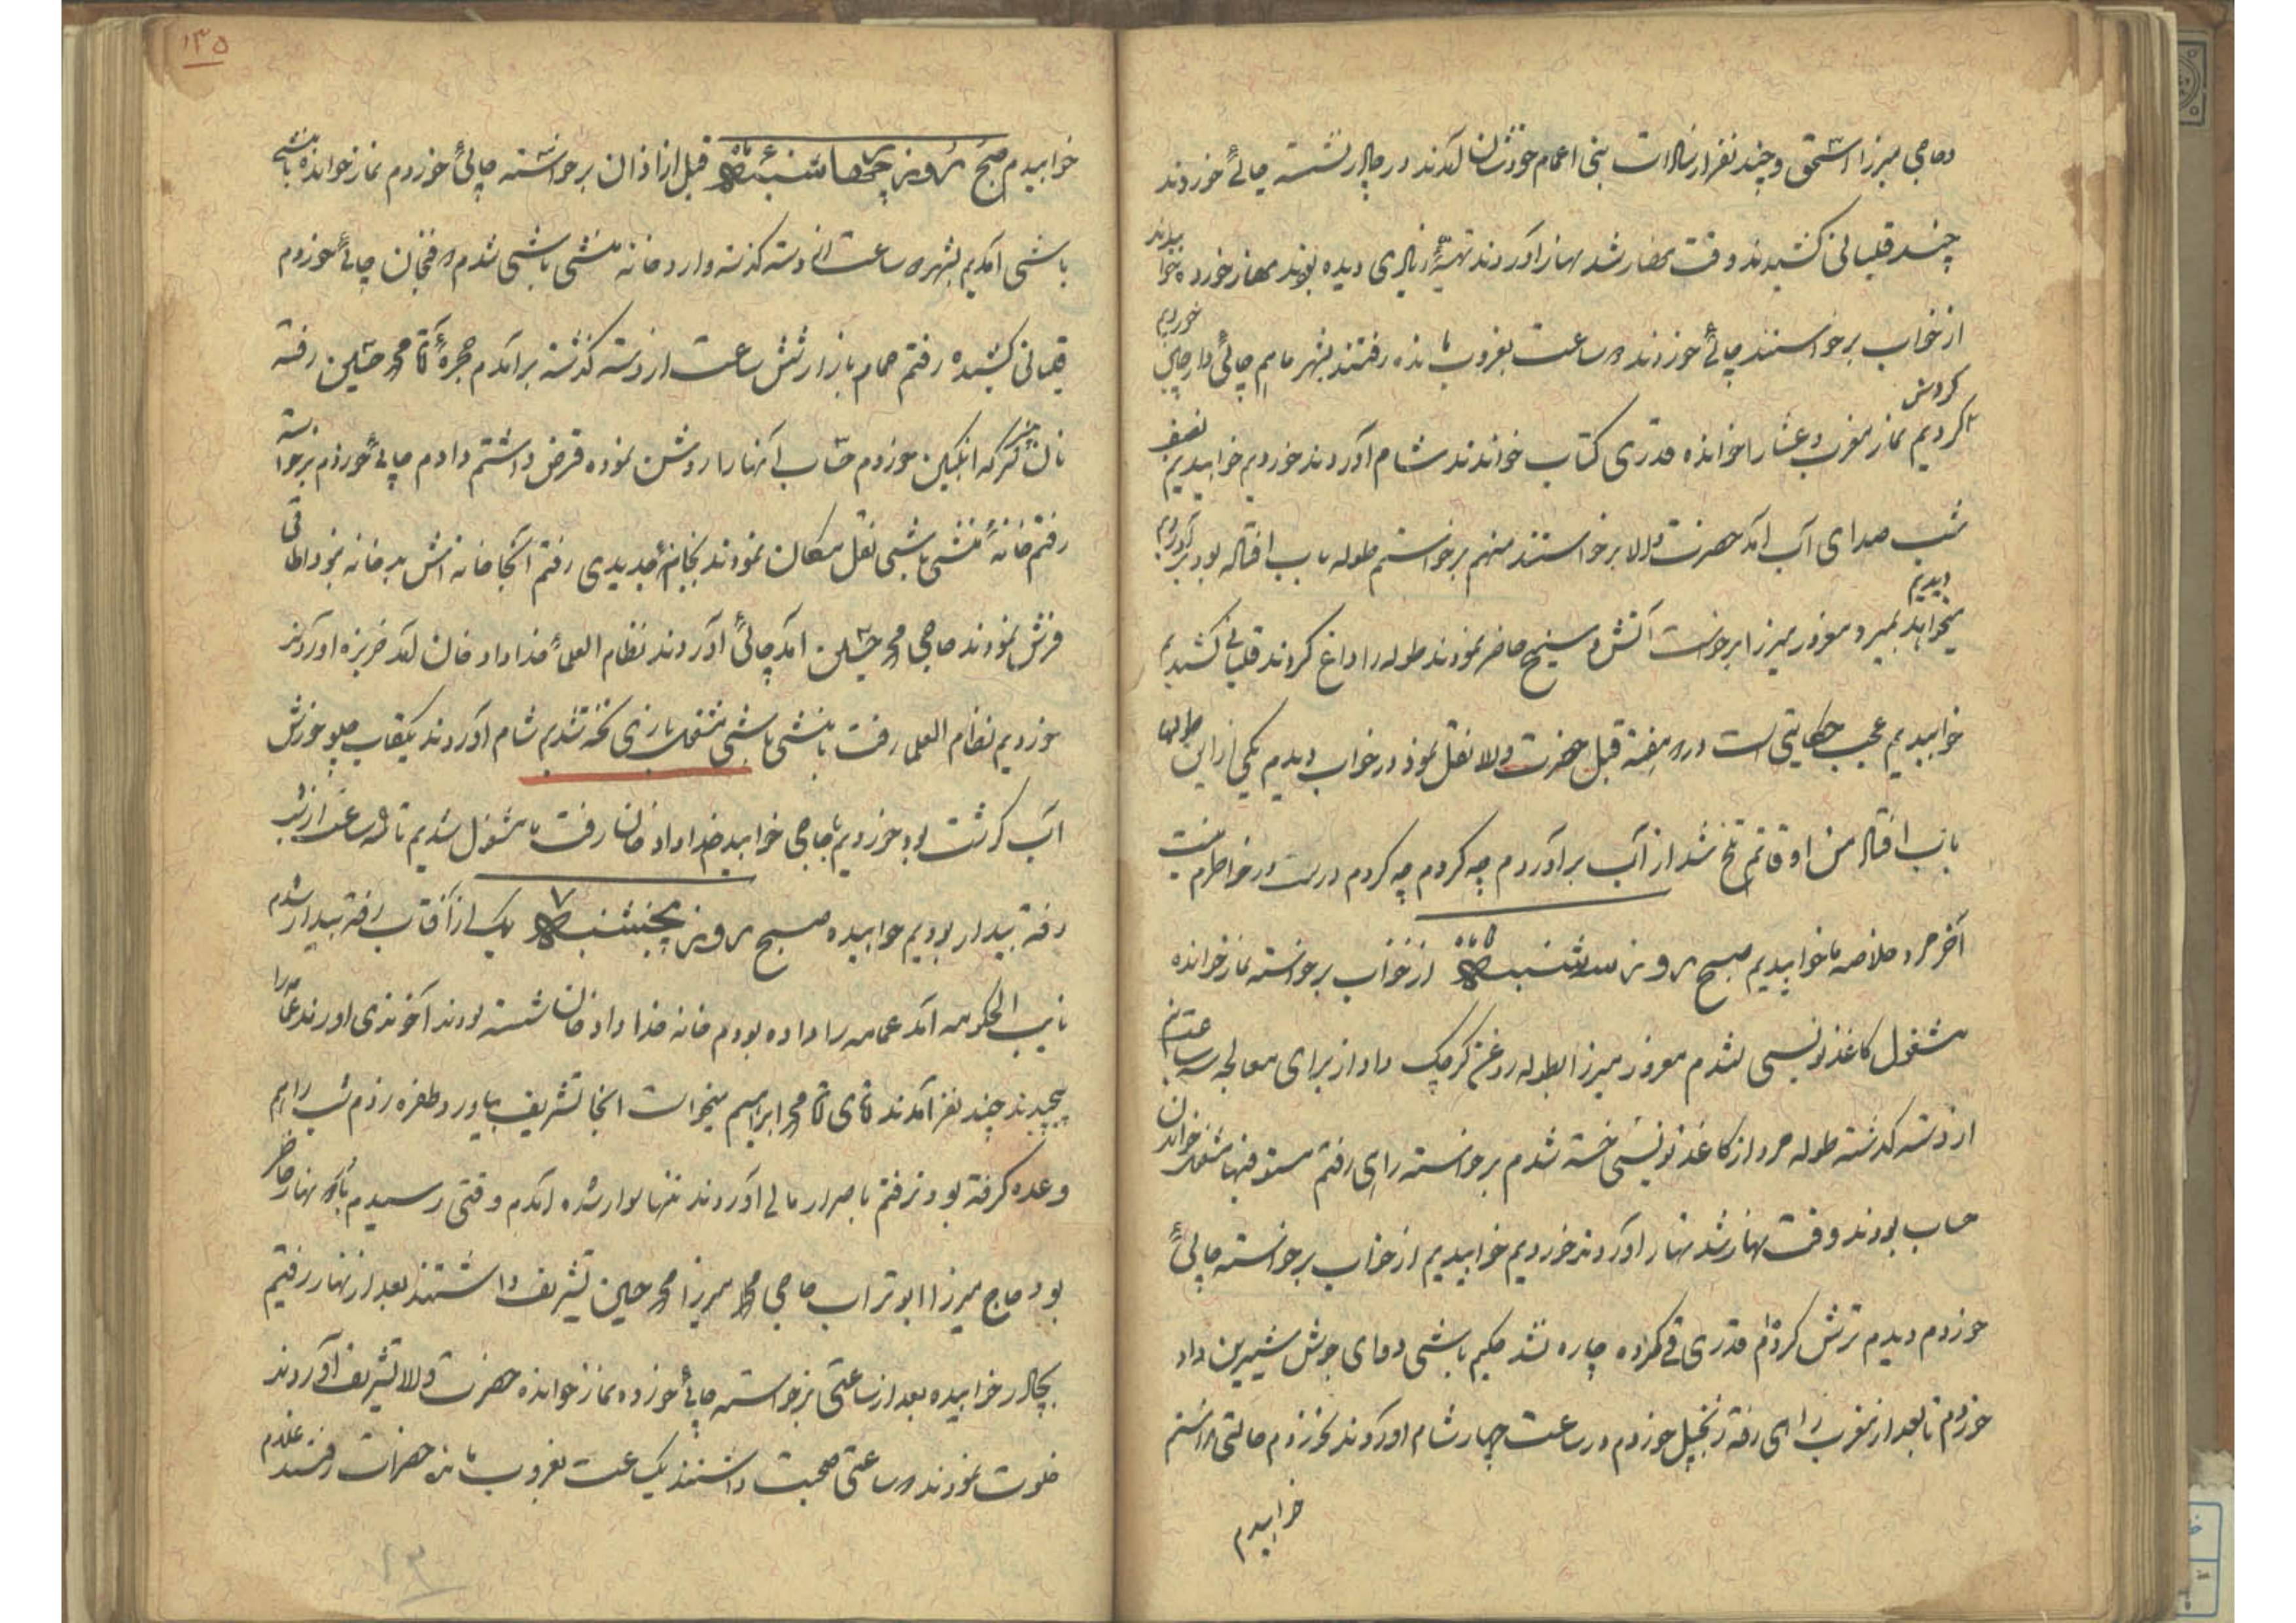 و حاجی میرزا اسحق و چند نفر از سادات بنی اعمام خودشان آمدند در چادر نشسته چائی خوردند
چند قلیانی کشیدند وقت نهار شد نهار آوردند تهیه دیده بودند نهار خورده خوابیدند
از خواب برخواستند چائی خوردند دو ساعت بغروب مانده رفتند بشهر ما هم چائی خوردیم
گردش کردیم نماز مغرب و عشا را خوانده قدری کتاب خواندند شام آوردند خوردیم خوابیدیم نصف
شب صدای آب آمد حضرت والا برخواستند منهم برخواستم طوله بآب افتاده بود برآوردیم دیدیم
میخواهد بمیرد میرزا برخواست آتش و سیخ حاضر نمودند طوله را داغ کردند قلیانی کشیدیم
خوابیدیم عجب حکایتی است در دو هفته قبل حضرت والا نقل نمود در خواب دیدم یکی از این طولها
بآب افتاد من اوقاتم تلخ شد از آب برآوردم چه کردم چه کردم درست در خاطرم نیست
آخر مرد خلاصه ما خوابیدیم صبح روز سه‌شنبه ۵ از خواب برخواسته نماز خوانده
مشغول کاغذ نویسی شدم میرزا بطوله روغن کرچک داد از برای معالجه سه ساعت
از دسته گذشته طوله مرد از کاغذ نویسی خسته شدم برخواسته رفتم مستوفیها مشغول خواندن
حساب بودند وقت نهار شد نهار آوردند خوردیم خوابیدیم از خواب برخواسته چائی
خوردم دیدم ترش کرده‌ام قدری قی کرده چاره نشد حکیم باشی دوای جوش شیرین داد
خوردم تا بعد از مغرب راهی رفته زنجبیل خوردم در ساعت چهار شام آوردند نخوردم حالتی نداشتم
خوابیدم
۱۳۵
خوابیدم صبح روز چهارشنبه ۶ قبل از اذان برخواسته چائی خوردم نماز خوانده با منشی
باشی آمدیم بشهر دو ساعت از دسته گذشته وارد خانه منشی باشی شدم دو فنجان چائی خوردم
قلیانی کشیده رفتم حمام بازار شش ساعت از دسته گذشته برآمدم حجره آقا محمد حسین رفته
نان سرکه انگبین خوردم حساب آنها را روشن نموده قرض داشتم دادم چائی خوردم برخواسته
رفتم خانه منشی باشی نقل مکان نمودند بخانه جدیدی رفتم آنجا خانه‌اش بد خانه نبود اطاقی
فرش نمودند حاجی محمد حسین آمد چائی آوردند نظام العلما خداداد خان آمد خربزه آوردند
خوردیم نظام العلما رفت با منشی باشی مشغول بازی تخته شدیم شام آوردند یکقاب چلو خورش
آب گوشت بود خوردیم حاجی خوابید خداداد خان رفت ما مشغول شدیم تا ساعت از شب
رفته بیدار بودیم خوابیده صبح روز پنجشنبه ۷ یک از آفتاب رفته بیدار شدم
نایب الحکومه آمد عمامه را داده بودم خانه خداداد خان شسته بودند آخوندی آوردند عمامه را
پیچیدند چند نفر آمدند آقای آقا محمد ابراهیم میخواست اینجا تشریف بیاورد طفره زدم شب را هم
وعده گرفته بود نرفتم باصرار مالی آوردند تنها سوار شده آمدم وقتی رسیدم نهار حاضر
بود حاج میرزا ابوتراب حاجی محمد میرزا محمد حسین تشریف داشتند بعد از نهار رفتیم
بچادر خوابیده بعد از ساعتی برخواسته چائی خورده نماز خوانده حضرت والا تشریف آوردند
خلوت نمودند دو ساعتی صحبت داشتند یک ساعت بغروب مانده حضرات رفتند